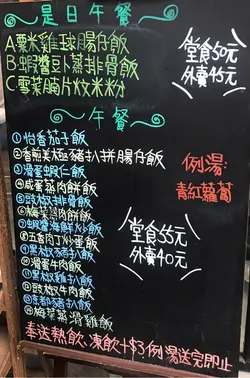 是日午餐
A粟米雞球腸仔飯
B蝦醬豆卜蒸排骨飯
C雪菜肉片炆米粉
堂食50元
外賣45元
午餐
①怡香茄子飯
②香煎美極豬扒拼腸仔飯
③滑蛋蝦仁飯
④咸蛋蒸肉餅飯
⑤豉椒排骨飯
⑥梅菜肉餅飯
⑦蝦醬海鮮炒飯
⑧五香肉丁炒蛋飯
⑨黑椒豬扒飯
⑩滑蛋牛肉飯
⑪黑椒雞扒飯
⑫豉椒牛肉飯
⑬京都豬扒飯
⑭梅菜蒸滑雞飯
例湯:
青紅蘿蔔
堂食55元
外賣40元
奉送熱飲、凍飲+$3例湯送完即止